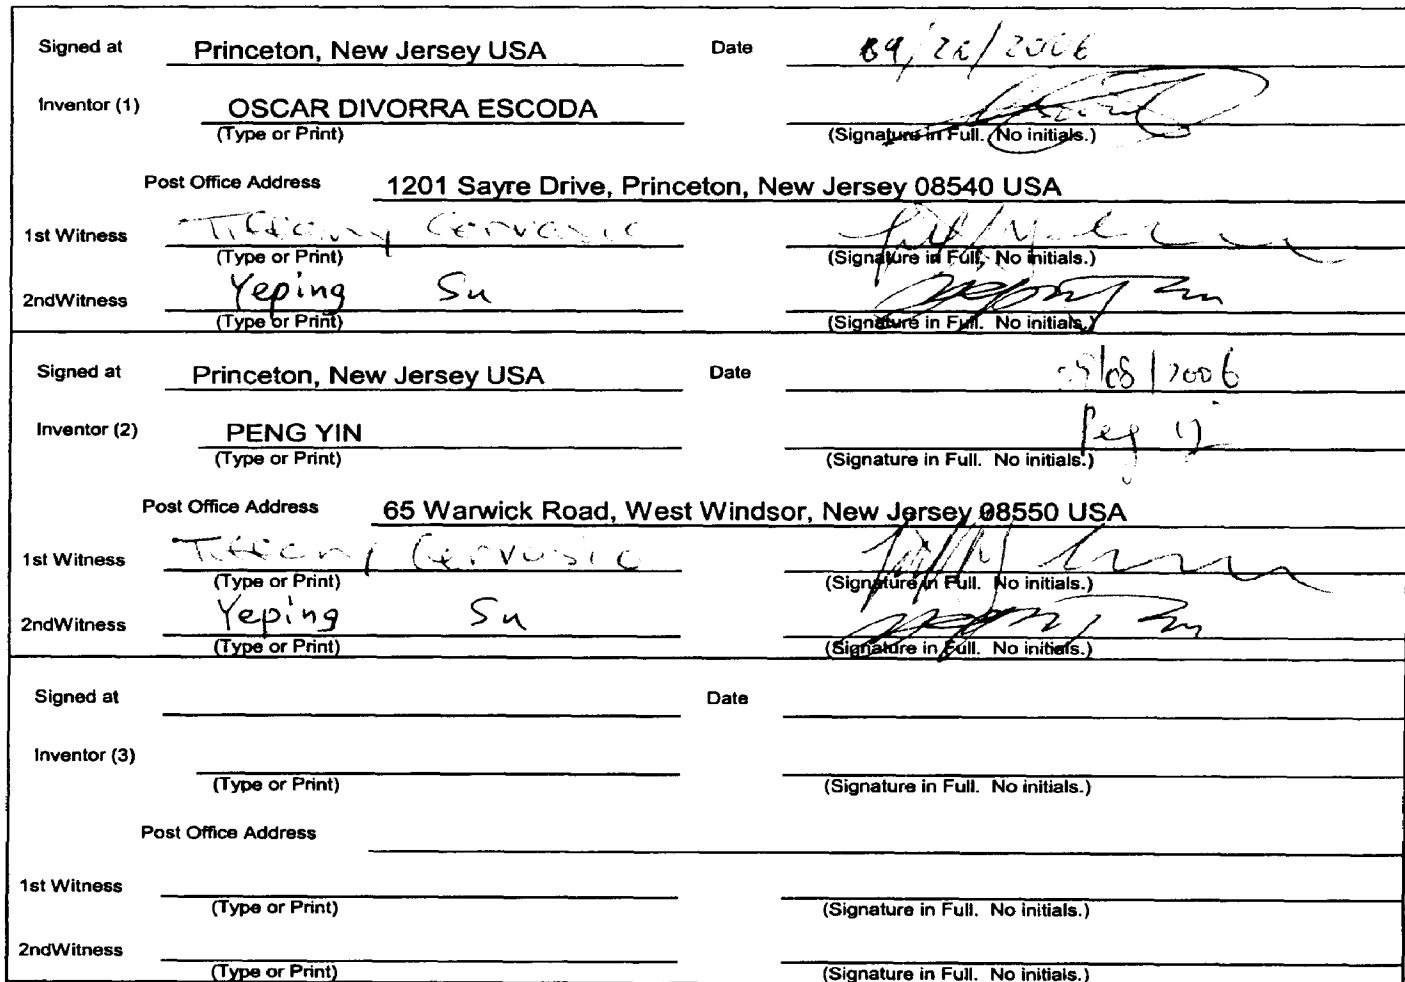 Signed at Princeton, New Jersey USA Date /2006
Inventor (1) OSCAR DIVORRA ESCODA
(Type or Print) (Signature in Full. No initials.)
Post Office Address 1201 Sayre Drive, Princeton, New Jersey 08540 USA
1st Witness Tiffany Gervasio
(Type or Print) (Signature in Full. No initials.)
2ndWitness Yeping Su
(Type or Print) (Signature in Full. No initials.)
Signed at Princeton, New Jersey USA Date /08/2006
Inventor (2) PENG YIN
(Type or Print) (Signature in Full. No initials.)
Post Office Address 65 Warwick Road, West Windsor, New Jersey 08550 USA
1st Witness Tiffany Gervasio
(Type or Print) (Signature in Full. No initials.)
2ndWitness Yeping Su
(Type or Print) (Signature in Full. No initials.)
Signed at Date
Inventor (3)
(Type or Print) (Signature in Full. No initials.)
Post Office Address
1st Witness
(Type or Print) (Signature in Full. No initials.)
2ndWitness
(Type or Print) (Signature in Full. No initials.)